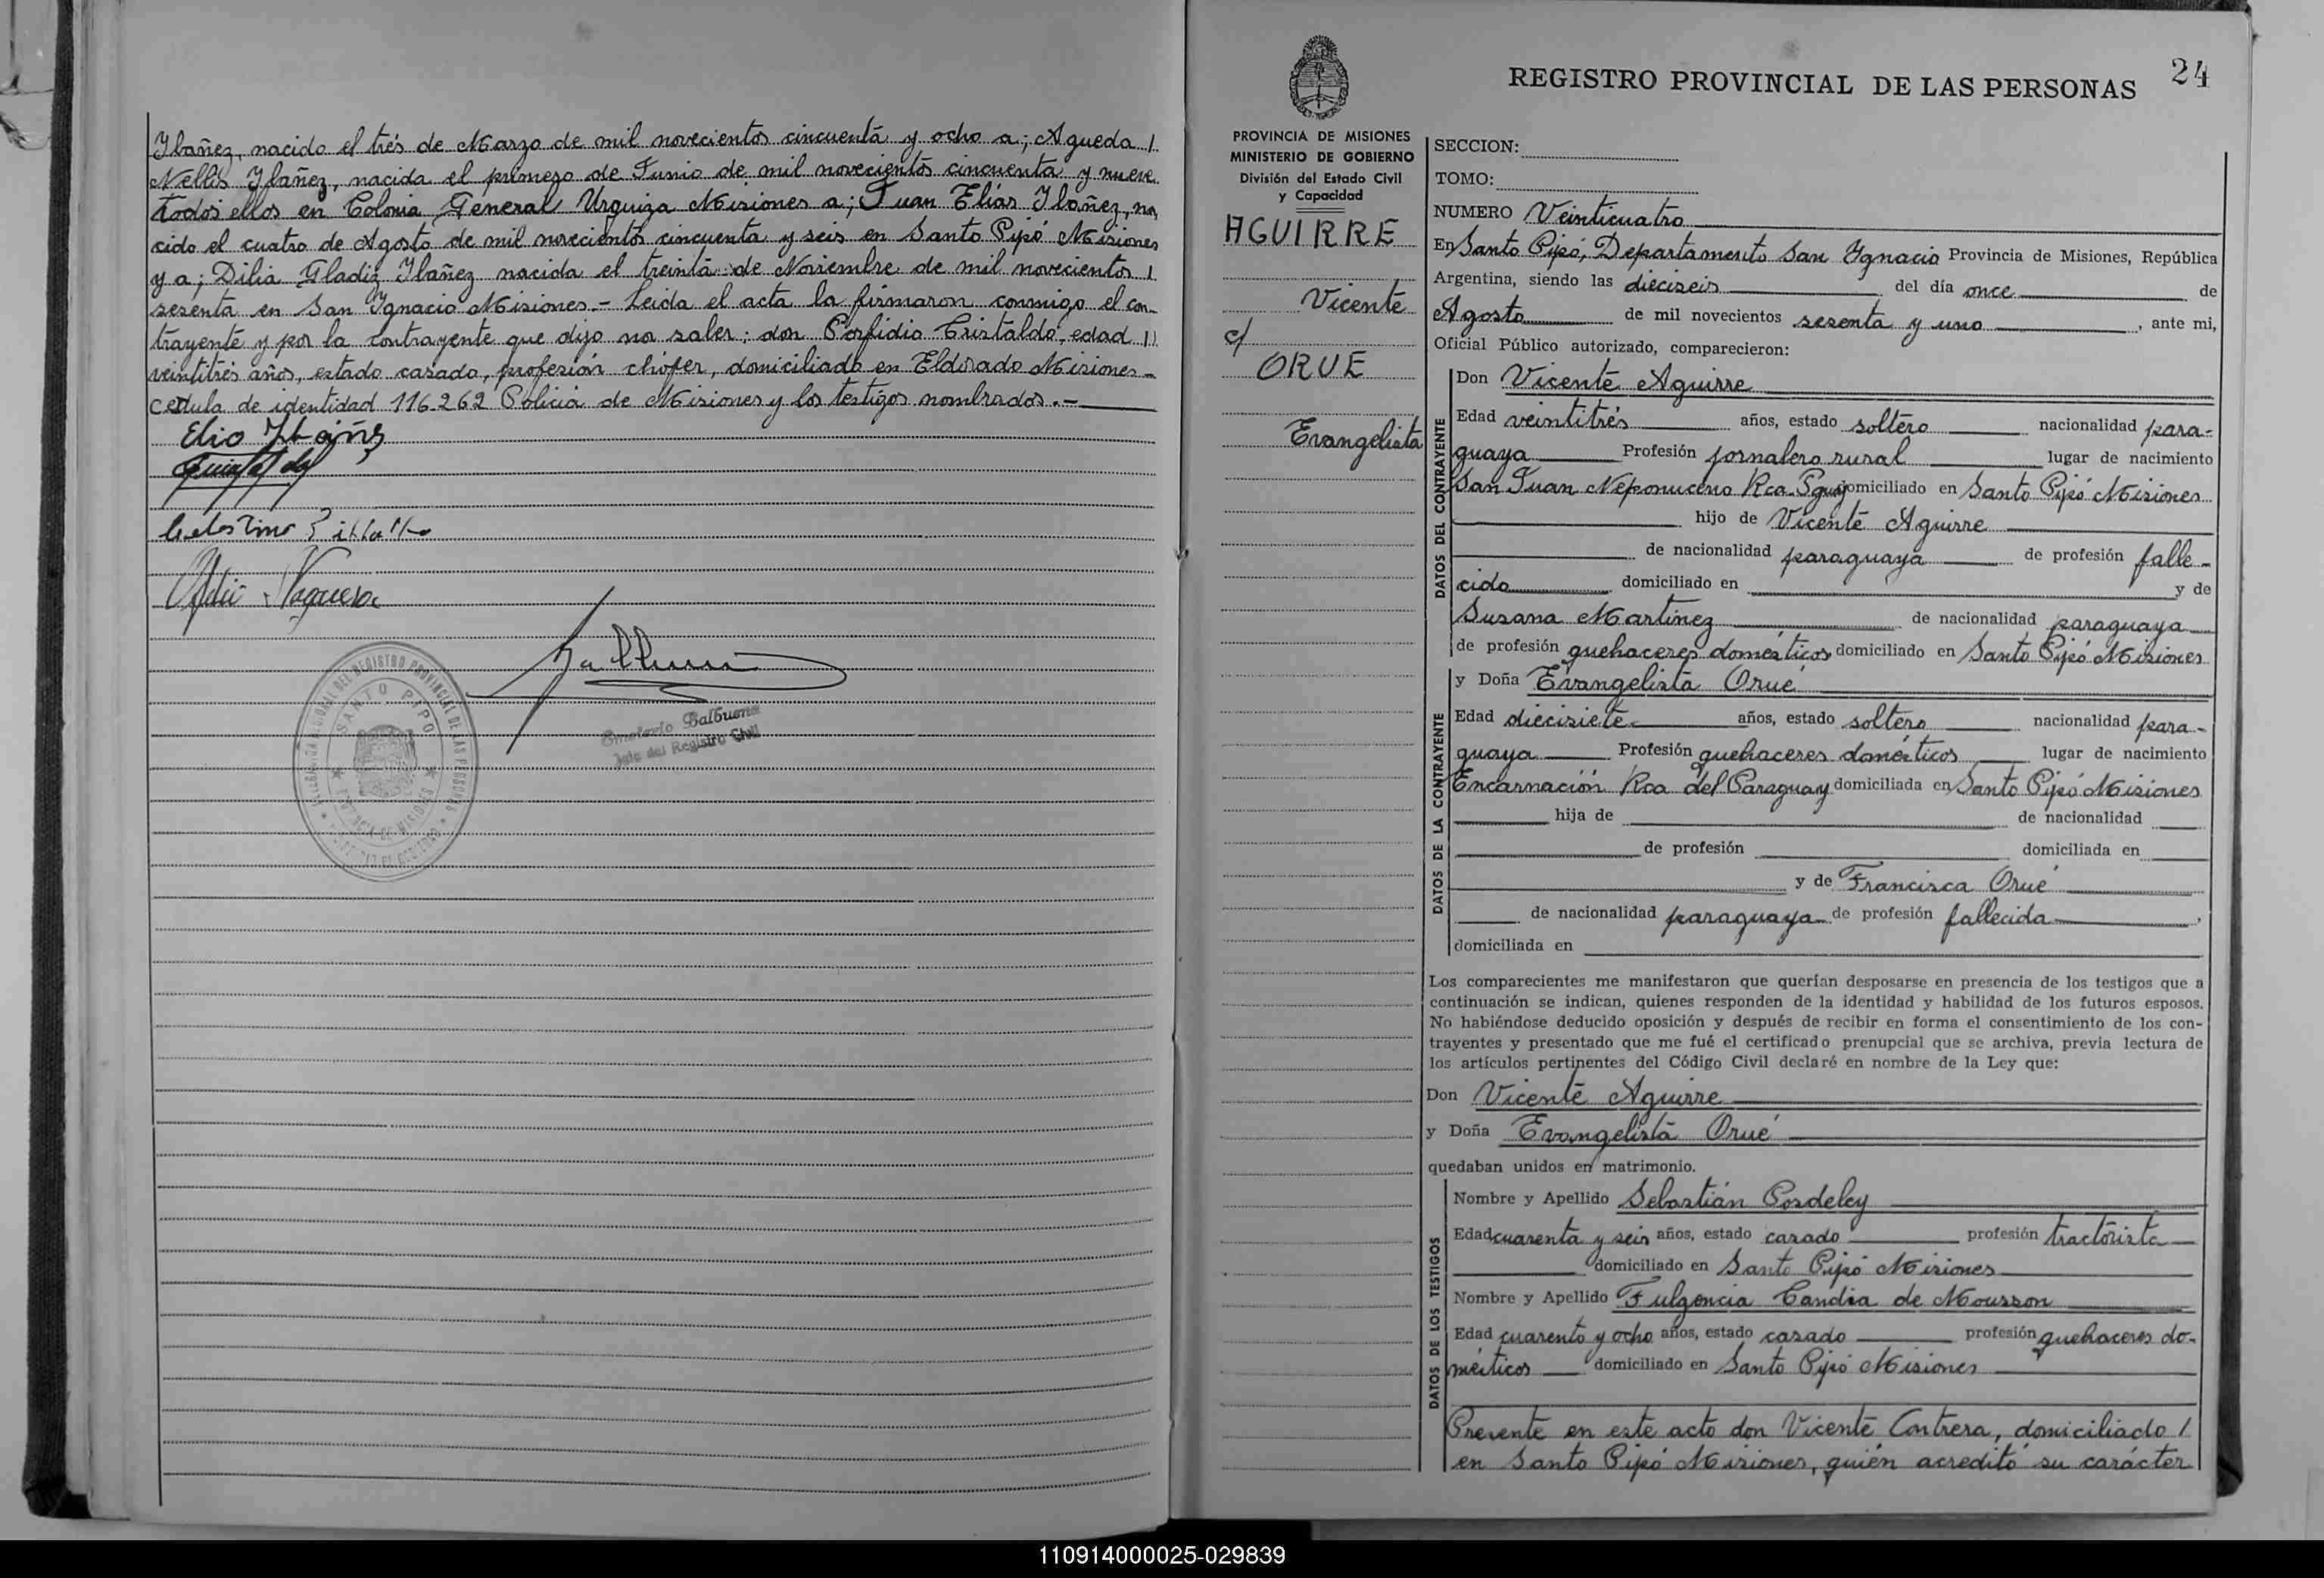 Ybañez, nacido el trés de Marzo de mil novecientos cincuenta y ocho a; Agueda /
Nellis Ybañez, nacida el primero de Junio de mil novecientos cincuenta y nueve
todos ellos en Colonia General Urquiza Misiones a; Juan Elías Ybañez, na
cido el cuatro de Agosto de mil novecientos cincuenta y seis en Santo Pipó Misiones
y a; Dilia Gladiz Ybañez nacida el treinta de Noviembre de mil novecientos /
sesenta en San Ygnacio Misiones.- Leida el acta la firmaron conmigo el con-
trayente y por la contrayente que dijo no saber: don Porfidio Cristaldo, edad //
veintitrés años, estado casado, profesión chófer, domiciliado en Eldorado Misiones-
cedula de identidad 116.262 Policia de Misiones y los testigos nombrados.-
Elio Ybañez
Celestino
Balbuena
DELEGACIÓN REGIONAL DEL REGISTRO PROVINCIAL DE LAS PERSONAS
SANTO PIPO
PROVINCIA DE MISIONES
Emeterio Balbuena
Jefe del Registro Civil
24
REGISTRO PROVINCIAL DE LAS PERSONAS
PROVINCIA DE MISIONES
MINISTERIO DE GOBIERNO
División del Estado Civil
y Capacidad
AGUIRRE
Vicente
c/
ORUE
Evangelista
SECCION:
TOMO:
NUMERO Veinticuatro
En Santo Pipó, Departamento San Ygnacio Provincia de Misiones, República
Argentina, siendo las dieciseis del día once de
Agosto de mil novecientos sesenta y uno, ante mi,
Oficial Público autorizado, comparecieron:
DATOS DEL CONTRAYENTE
Don Vicente Aguirre
Edad veintitrés años, estado soltero nacionalidad para-
guaya Profesión jornalero rural lugar de nacimiento
San Juan Neponuceno Rca. Pguay domiciliado en Santo Pipó Misiones
hijo de Vicente Aguirre
de nacionalidad paraguaya de profesión falle-
cido domiciliado en y de
Susana Martinez de nacionalidad paraguaya
de profesión quehaceres domésticos domiciliado en Santo Pipó Misiones
DATOS DE LA CONTRAYENTE
y Doña Evangelista Orué
Edad diecisiete años, estado soltera nacionalidad para-
guaya Profesión quehaceres domésticos lugar de nacimiento
Encarnación Rca del Paraguay domiciliada en Santo Pipó Misiones
hija de de nacionalidad
de profesión domiciliada en
y de Francisca Orué
de nacionalidad paraguaya de profesión fallecida,
domiciliada en
Los comparecientes me manifestaron que querían desposarse en presencia de los testigos que a
continuación se indican, quienes responden de la identidad y habilidad de los futuros esposos.
No habiéndose deducido oposición y después de recibir en forma el consentimiento de los con-
trayentes y presentado que me fué el certificado prenupcial que se archiva, previa lectura de
los artículos pertinentes del Código Civil declaré en nombre de la Ley que:
Don Vicente Aguirre
y Doña Evangelista Orué
quedaban unidos en matrimonio.
DATOS DE LOS TESTIGOS
Nombre y Apellido Sebastián Posdeley
Edad cuarenta y seis años, estado casado profesión tractorista
domiciliado en Santo Pipó Misiones
Nombre y Apellido Fulgencia Candia de Mousson
Edad cuarenta y ocho años, estado casado profesión quehaceres do-
mésticos domiciliado en Santo Pipó Misiones
Presente en este acto don Vicente Contrera, domiciliado /
en Santo Pipó Misiones, quién acreditó su carácter
110914000025-029839